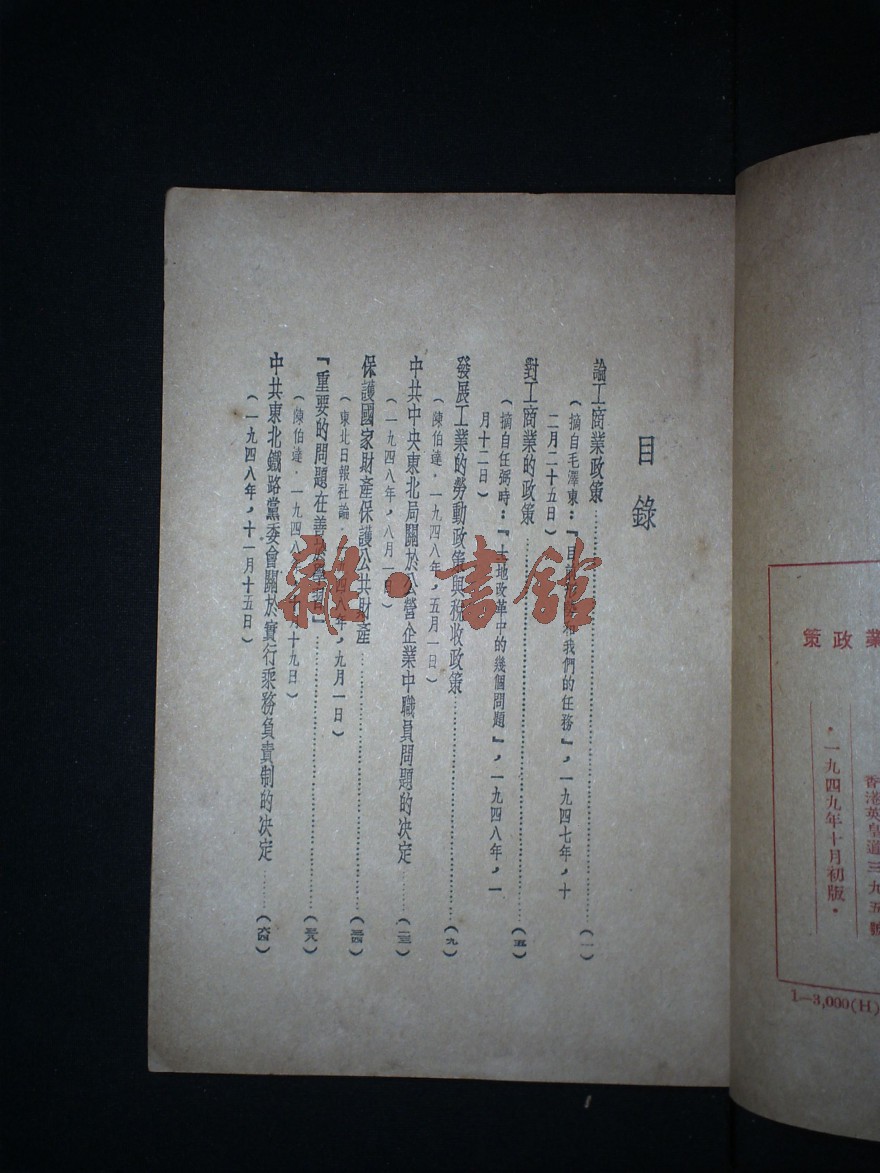 策政業
香港英皇道三九五號
·一九四九年十月初版·
1—3,000(H)
目錄
論工商業政策……(一)
(摘自毛澤東:『目前形勢和我們的任務』,一九四七年,十
二月二十五日)
對工商業的政策……(五)
(摘自任弼時:『土地改革中的幾個問題』,一九四八年,一
月十二日)
發展工業的勞動政策與稅收政策……(九)
(陳伯達·一九四八年,五月一日)
中共中央東北局關於公營企業中職員問題的決定……(二三)
(一九四八年,八月一日)
保護國家財產保護公共財產……(三四)
(東北日報社論·一九四八年,九月一日)
『重要的問題在善於學習』……(五八)
(陳伯達·一九四八 十九日)
中共東北鐵路黨委會關於實行乘務負責制的決定……(六四)
(一九四八年,十一月十五日)
雜·書館